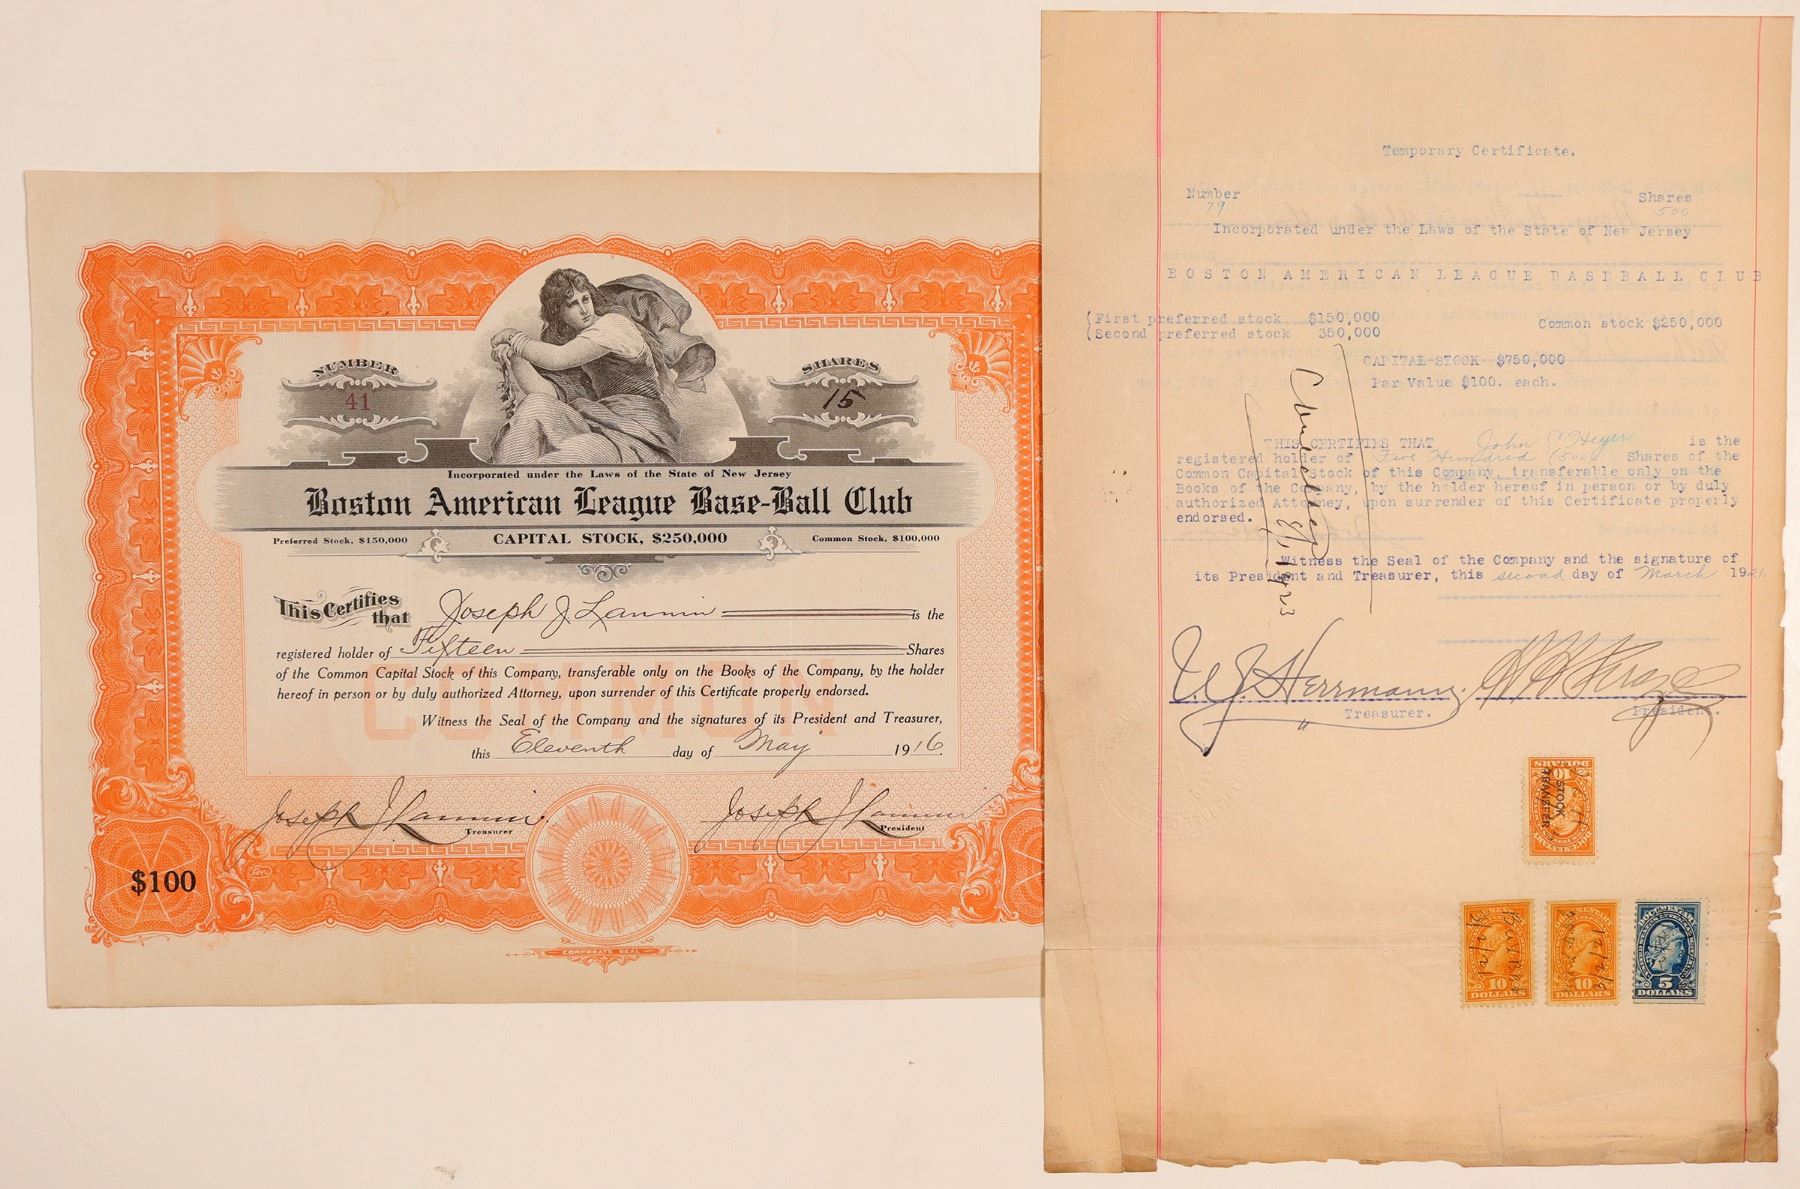 NUMBER
41
SHARES
15
Incorporated under the Laws of the State of New Jersey
Boston American League Base-Ball Club
Preferred Stock, $150,000
CAPITAL STOCK, $250,000
Common Stock, $100,000
This Certifies that Joseph J. Lannin is the
registered holder of Fifteen Shares
of the Common Capital Stock of this Company, transferable only on the Books of the Company, by the holder
hereof in person or by duly authorized Attorney, upon surrender of this Certificate properly endorsed.
COMMON
Witness the Seal of the Company and the signatures of its President and Treasurer,
this Eleventh day of May 1916.
Joseph J Lannin
Treasurer
Joseph J Lannin
President
$100
CORPORATE SEAL
Temporary Certificate.
Number
79
Shares
500
Incorporated under the Laws of the State of New Jersey
BOSTON AMERICAN LEAGUE BASEBALL CLUB
(First preferred stock $150,000
(Second preferred stock 350,000
Common stock $250,000
CAPITAL STOCK $750,000
Par Value $100. each.
THIS CERTIFIES THAT John Heyer is the
registered holder of Five Hundred (500) Shares of the
Common Capital Stock of this Company, transferable only on the
Books of the Company, by the holder hereof in person or by duly
authorized Attorney, upon surrender of this Certificate properly
endorsed.
Witness the Seal of the Company and the signature of
its President and Treasurer, this second day of March 1921
Cancelled
Treasurer.
President.
STOCK
TRANSFER
10
DOLLARS
DOCUMENTARY
10
DOLLARS
DOCUMENTARY
10
DOLLARS
DOCUMENTARY
5
DOLLARS